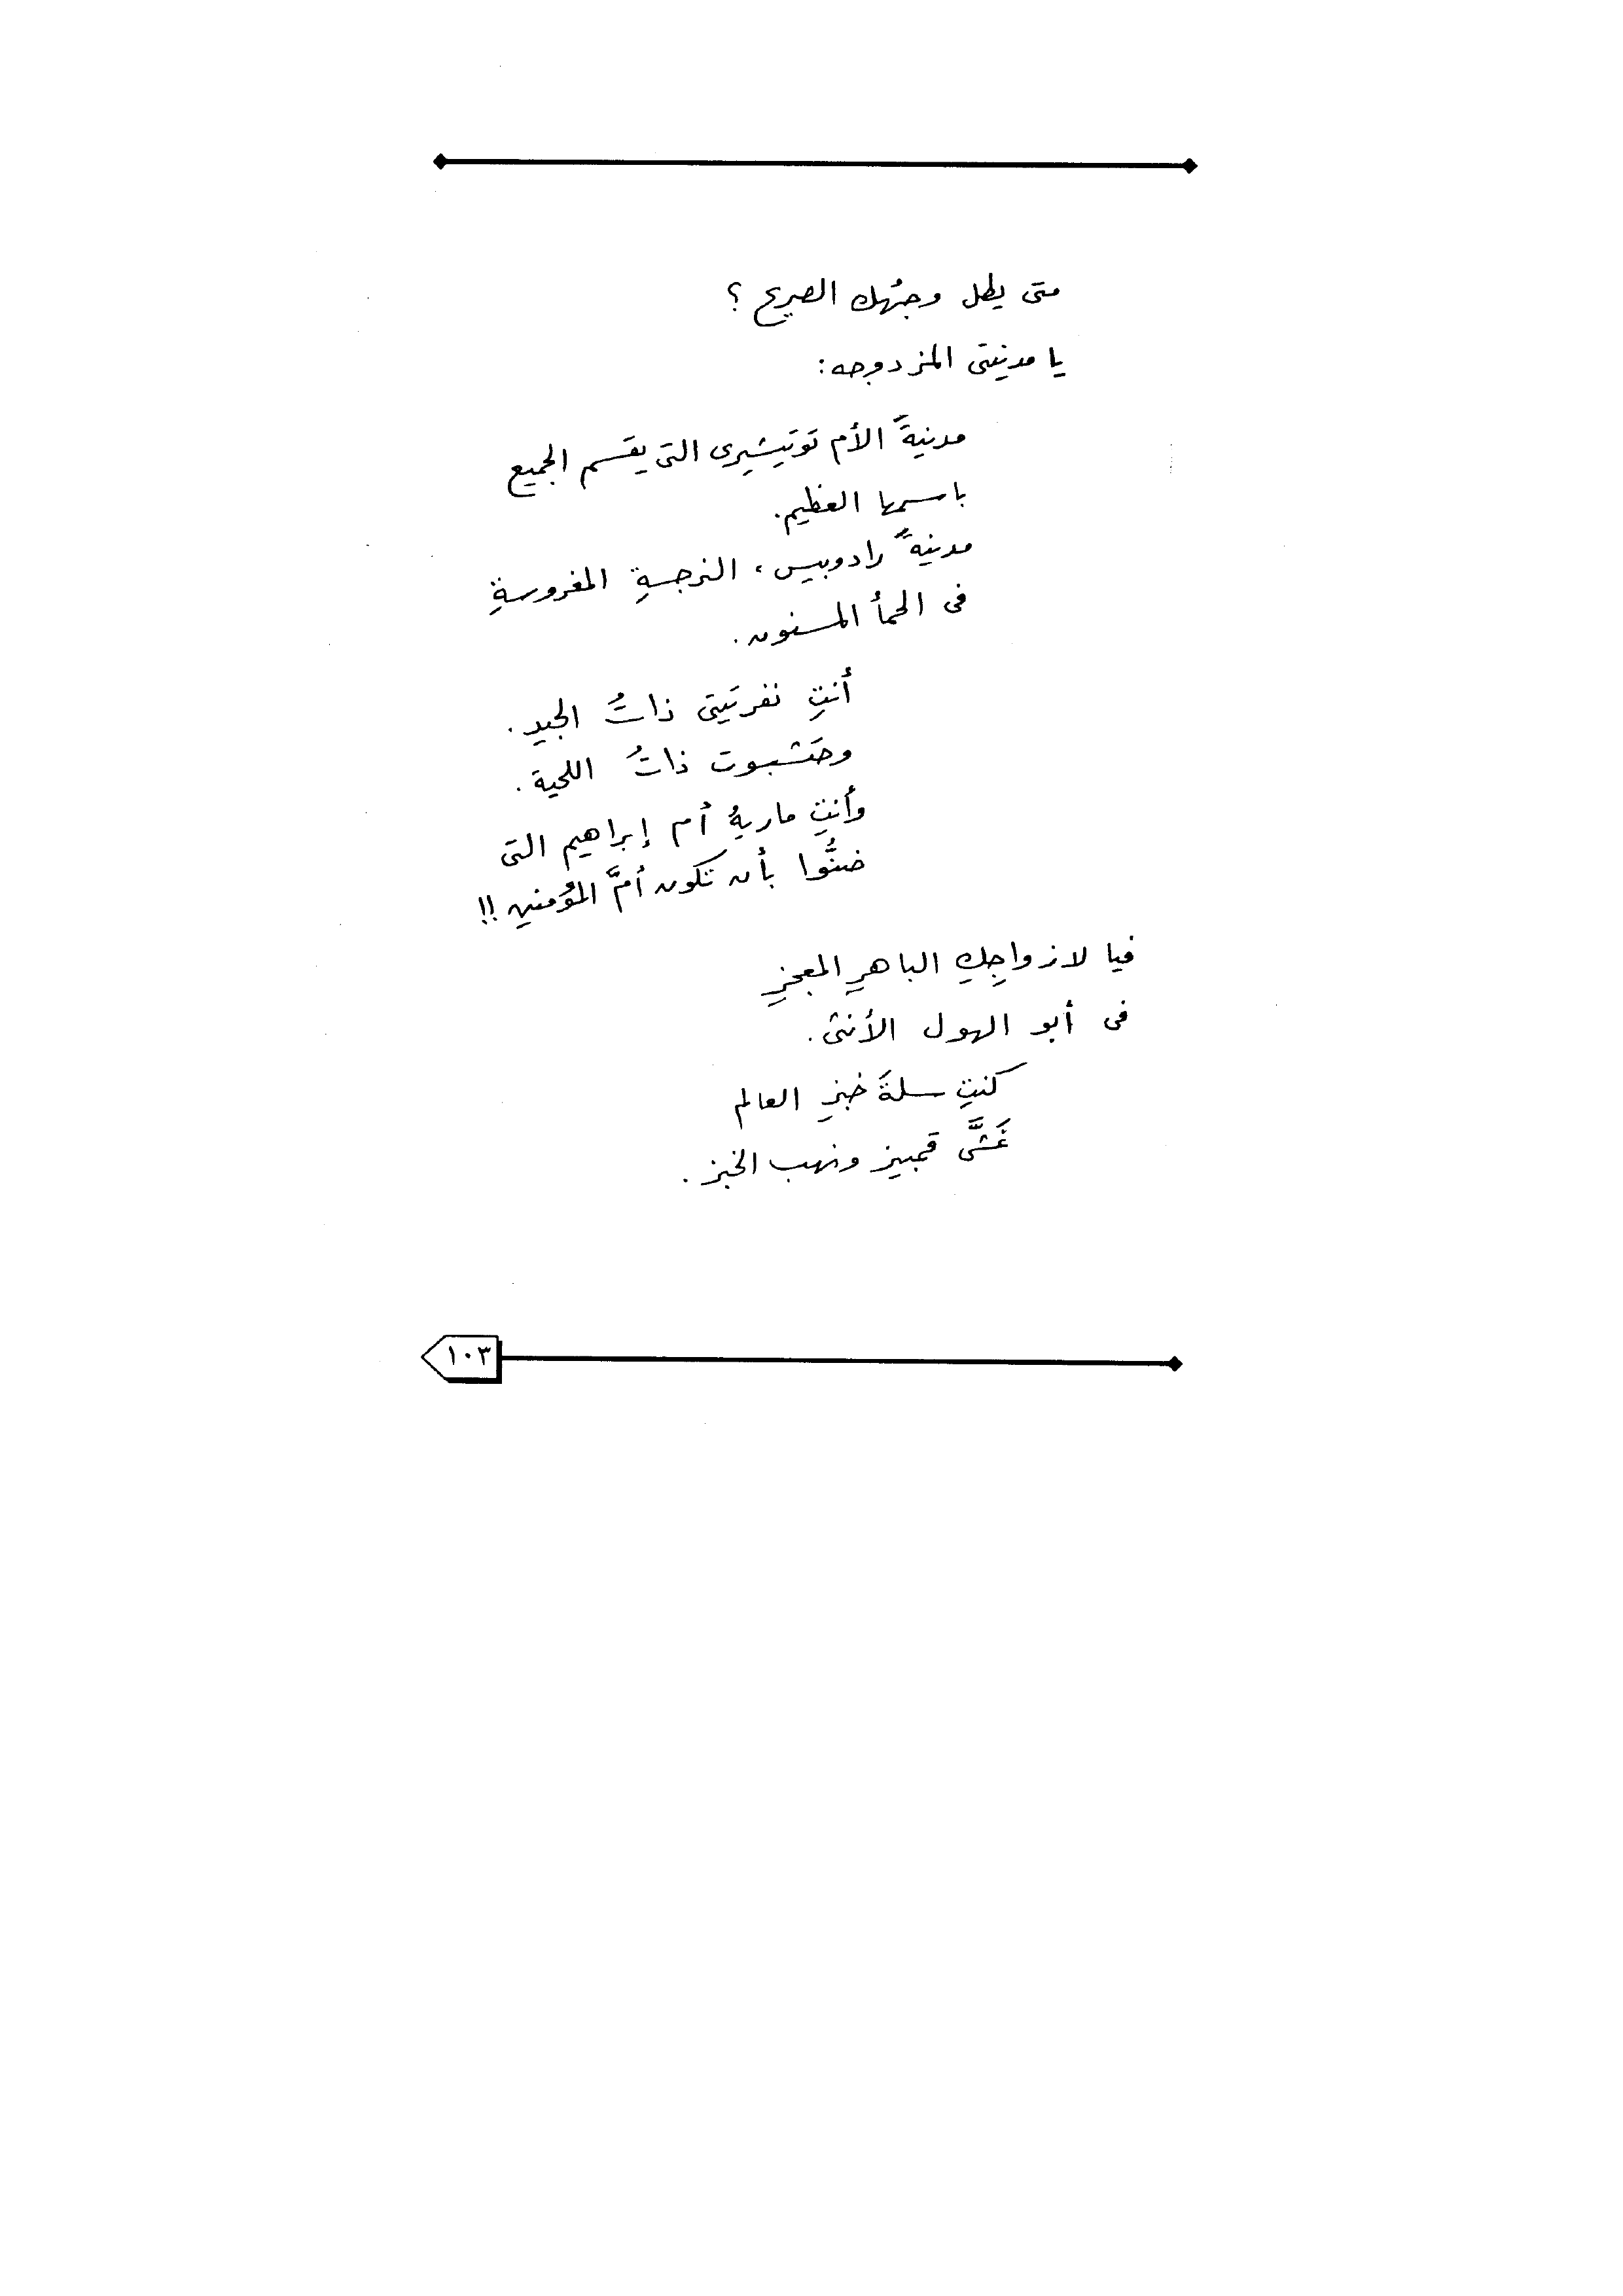 متى يطل وجهُك الصريح ؟
يا مدينتى المزدوجه:
مدينةَ الأم توتيشيرى التى يقسم الجميع
باسمها العظيم.
مدينةَ رادوبيس، النرجسةِ المغروسةِ
فى الحمأ المسنون.
أنتِ نفرتيتى ذاتُ الجيدِ.
وحتشبوت ذاتُ اللحية.
وأنتِ ماريةُ أم إبراهيم التى
ضنُّوا بأن تكون أمَّ المؤمنين !!
فيا لازدواجِكِ الباهرِ المعجزِ
فى أبو الهول الأنثى.
كنتِ سلةَ خبزِ العالم
غَشَّى قمبيز ونهب الخبز.
١٠٣